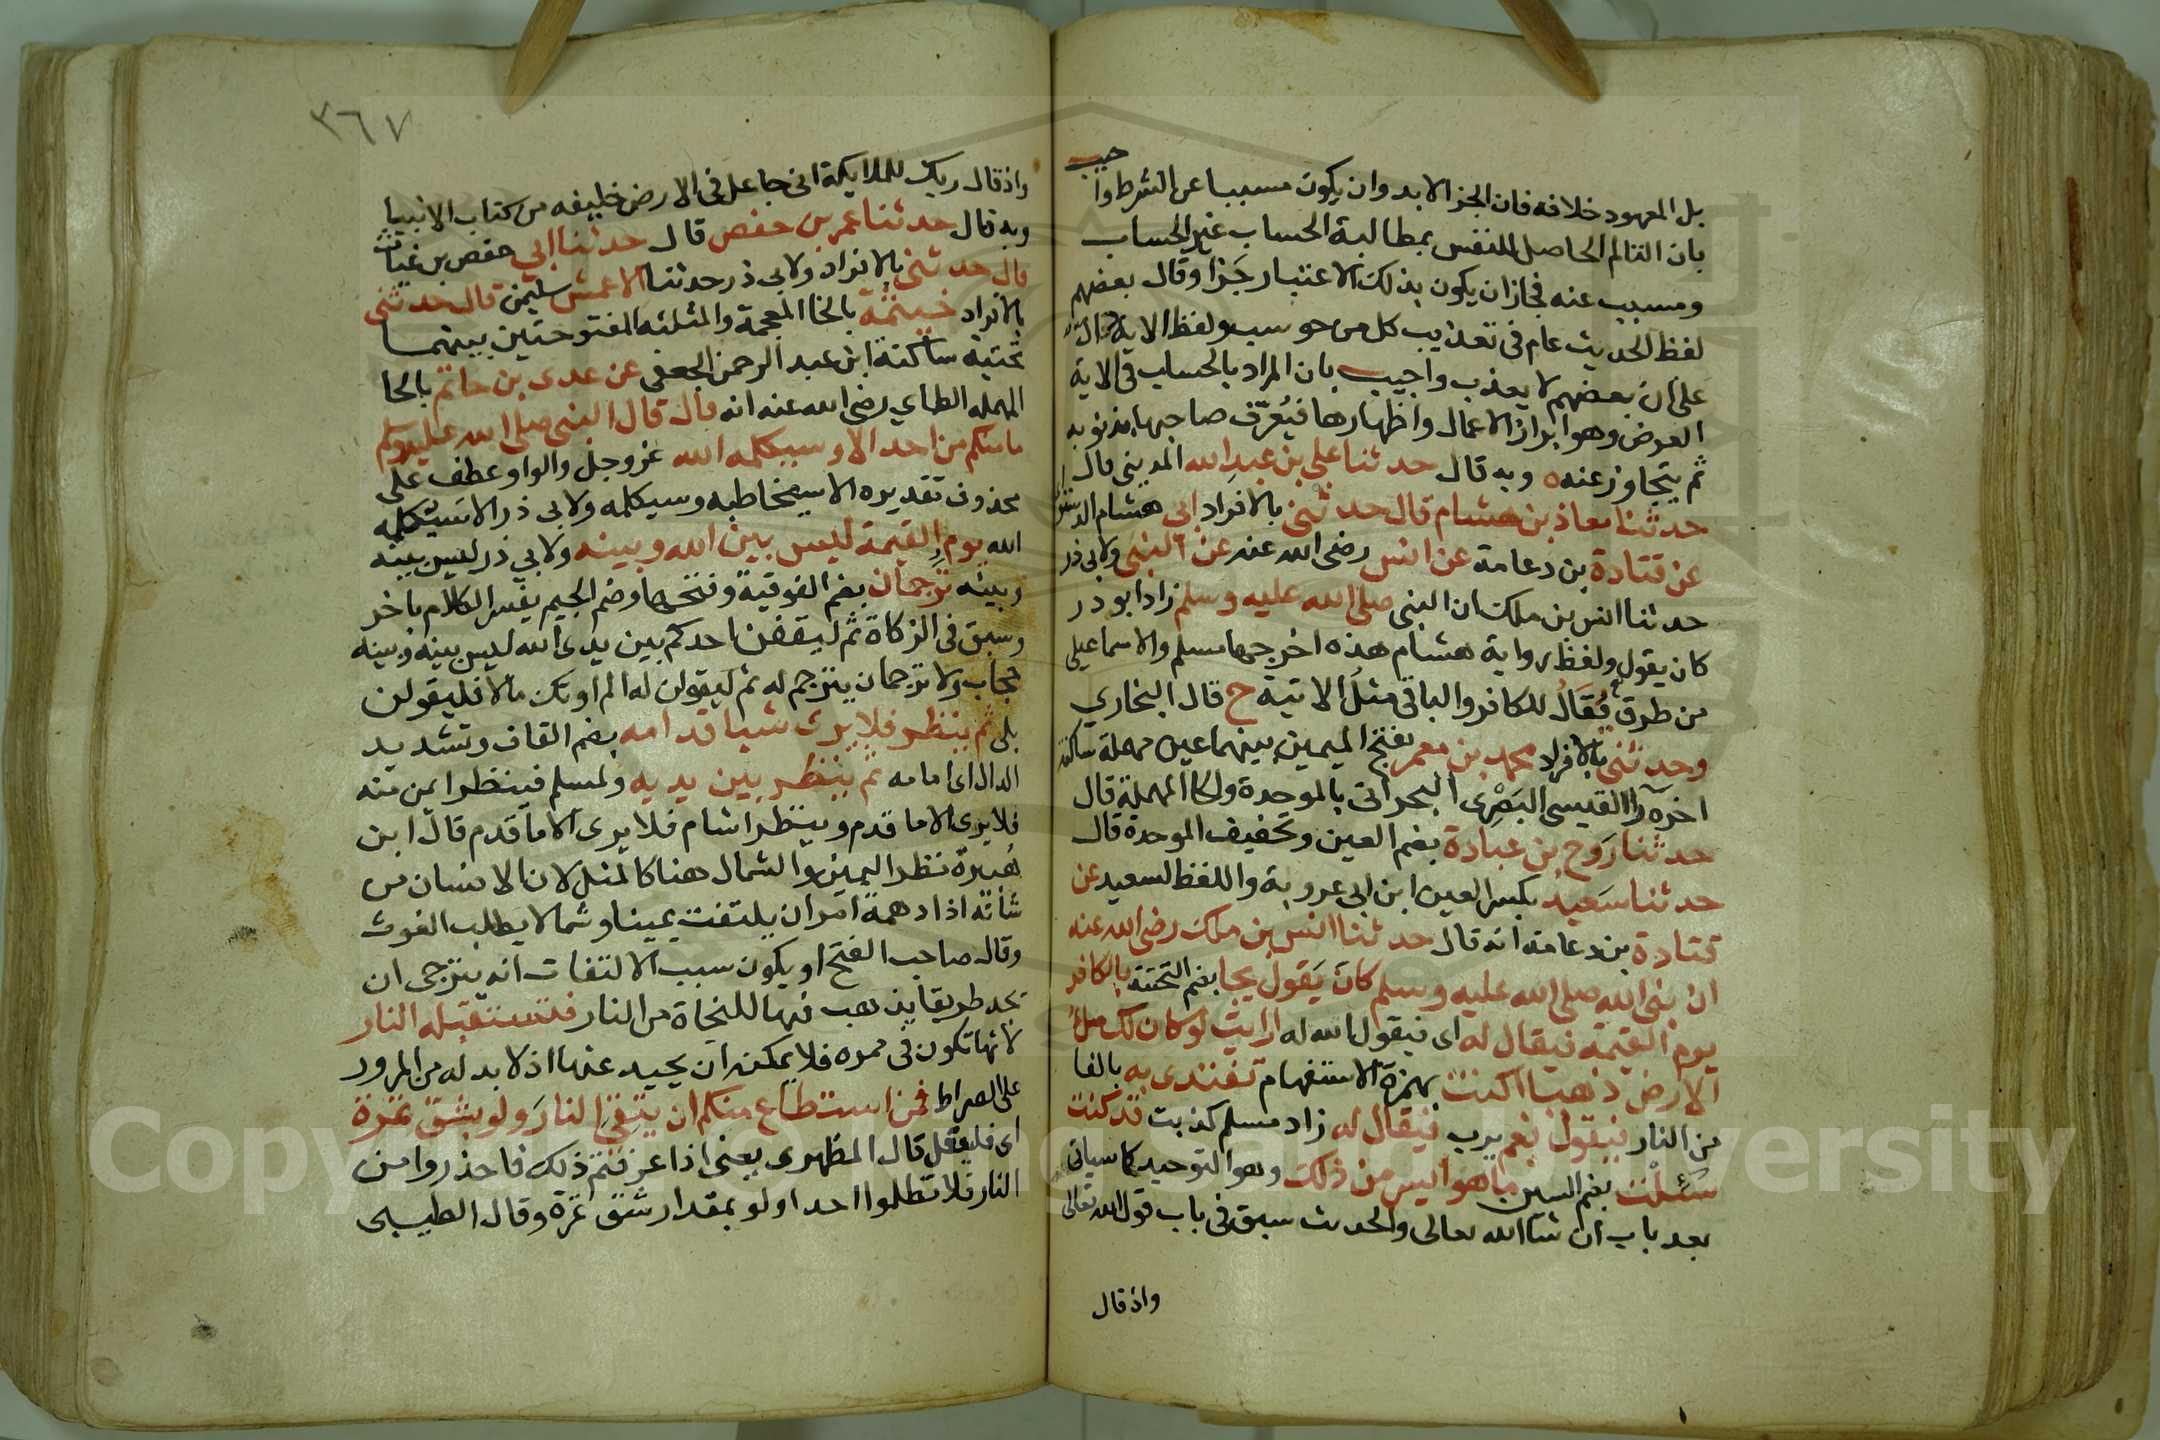 بل المعهود خلافه فان الجزا لابد وان يكون مسببا عن الشرط واجيب
بان التالم الحاصل للنفس بمطالبة الحساب غير الحساب
ومسبب عنه فجاز ان يكون بذلك الاعتبار جزا وقال بعضهم
لفظ الحديث عام في تعذيب كل من حوسب ولفظ الاية دال
على ان بعضهم لا يعذب واجيب بان المراد بالحساب في الاية
العرض وهو ابراز الاعمال واظهارها فيعرف صاحبها بذنوبه
ثم يتجاوز عنه ه وبه قال حدثنا علي بن عبد الله المديني قال
حدثنا معاذ بن هشام قال حدثني بالافراد ابي هشام الدستوا
عن قتادة بن دعامة عن انس رضي الله عنه عن النبي ولابي ذر
حدثنا انس بن ملك ان النبي صلى الله عليه وسلم زاد ابو ذر
كان يقول ولفظ رواية هشام هذه اخرجها مسلم والاسماعيلي
من طرق يقال للكافر والباقي مثل الاتية ح قال البخاري
وحدثني بالافراد محمد بن معمر بفتح الميمين بينهما عين مهملة ساكنة
اخره را القيسي البصري البحراني بالموحدة والحا المهملة قال
حدثنا روح بن عبادة بضم العين وتخفيف الموحدة قال
حدثنا سعيد بكسر العين ابن ابي عروبة واللفظ لسعيد عن
قتادة بن دعامة انه قال حدثنا انس بن ملك رضي الله عنه
ان نبي الله صلى الله عليه وسلم كان يقول يجا بضم التحتية بالكافر
يوم القيمة فيقال له اي فيقول الله له ارايت لو كان لك مل
الارض ذهبا اكنت بهمزة الاستفهام تفتدي به بالفا
من النار فيقول نعم يرب فيقال له زاد مسلم كذبت قد كنت
سئلت بضم السين ما هو ايسر من ذلك وهو التوحيد كما سياتي
بعد باب ان شا الله تعالى والحديث سبق في باب قول الله تعالى
واذ قال
٣٦٧
واذ قال ربك للملايكة اني جاعل في الارض خليفه من كتاب الانبيا
وبه قال حدثنا عمر بن حفص قال حدثنا ابي حفص بن غياث
قال حدثني بالافراد ولابي ذر حدثنا الاعمش سليمن قال حدثني
بالافراد خيثمة بالخا المعجمة والمثلثه المفتوحتين بينهما
تحتية ساكنة ابن عبد الرحمن الجعفي عن عدي بن حاتم بالحا
المهمله الطاي رضي الله عنه انه قال قال النبي صلى الله عليه وسلم
ما منكم من احد الا وسيكلمه الله عز وجل والواو عطف على
محذوف تقديره الا سيخاطبه وسيكلمه ولابي ذر الا سيكلمه
الله يوم القيمة ليس بين الله وبينه ولابي ذر ليس بينه
وبينه ترجمان بضم الفوقية وفتحها وضم الجيم يفسر الكلام باخر
وسبق في الزكاة ثم ليقفن احدكم بين يدي الله ليس بينه وبينه
حجاب ولا ترجمان يترجم له ثم ليقولن له الم اوتك مالا فليقولن
بلى ثم ينظر فلا يرى شيا قدامه بضم القاف وتشديد
الدال اي امامه ثم ينظر بين يديه ولمسلم فينظر ايمن منه
فلا يرى الا ما قدم وينظر اشام فلا يرى الا ما قدم قال ابن
هبيرة نظر اليمين والشمال هنا كالمثل لان الانسان من
شانه اذا دهمه امر ان يلتفت يمينا وشمالا يطلب الغوث
وقال صاحب الفتح او يكون سبب الالتفات انه يترجى ان
يجد طريقا يذهب فيها للنجاة من النار فتستقبله النار
لانها تكون في ممره فلا يمكنه ان يحيد عنها اذ لا بد له من المرور
على الصراط فمن استطاع منكم ان يتقي النار ولو بشق تمرة
اي فليفعل قال المظهري يعني اذا عرفتم ذلك فاحذروا من
النار فلا تظلموا احدا ولو بمقدار شق تمرة وقال الطيبي
Copyright © King Saud University